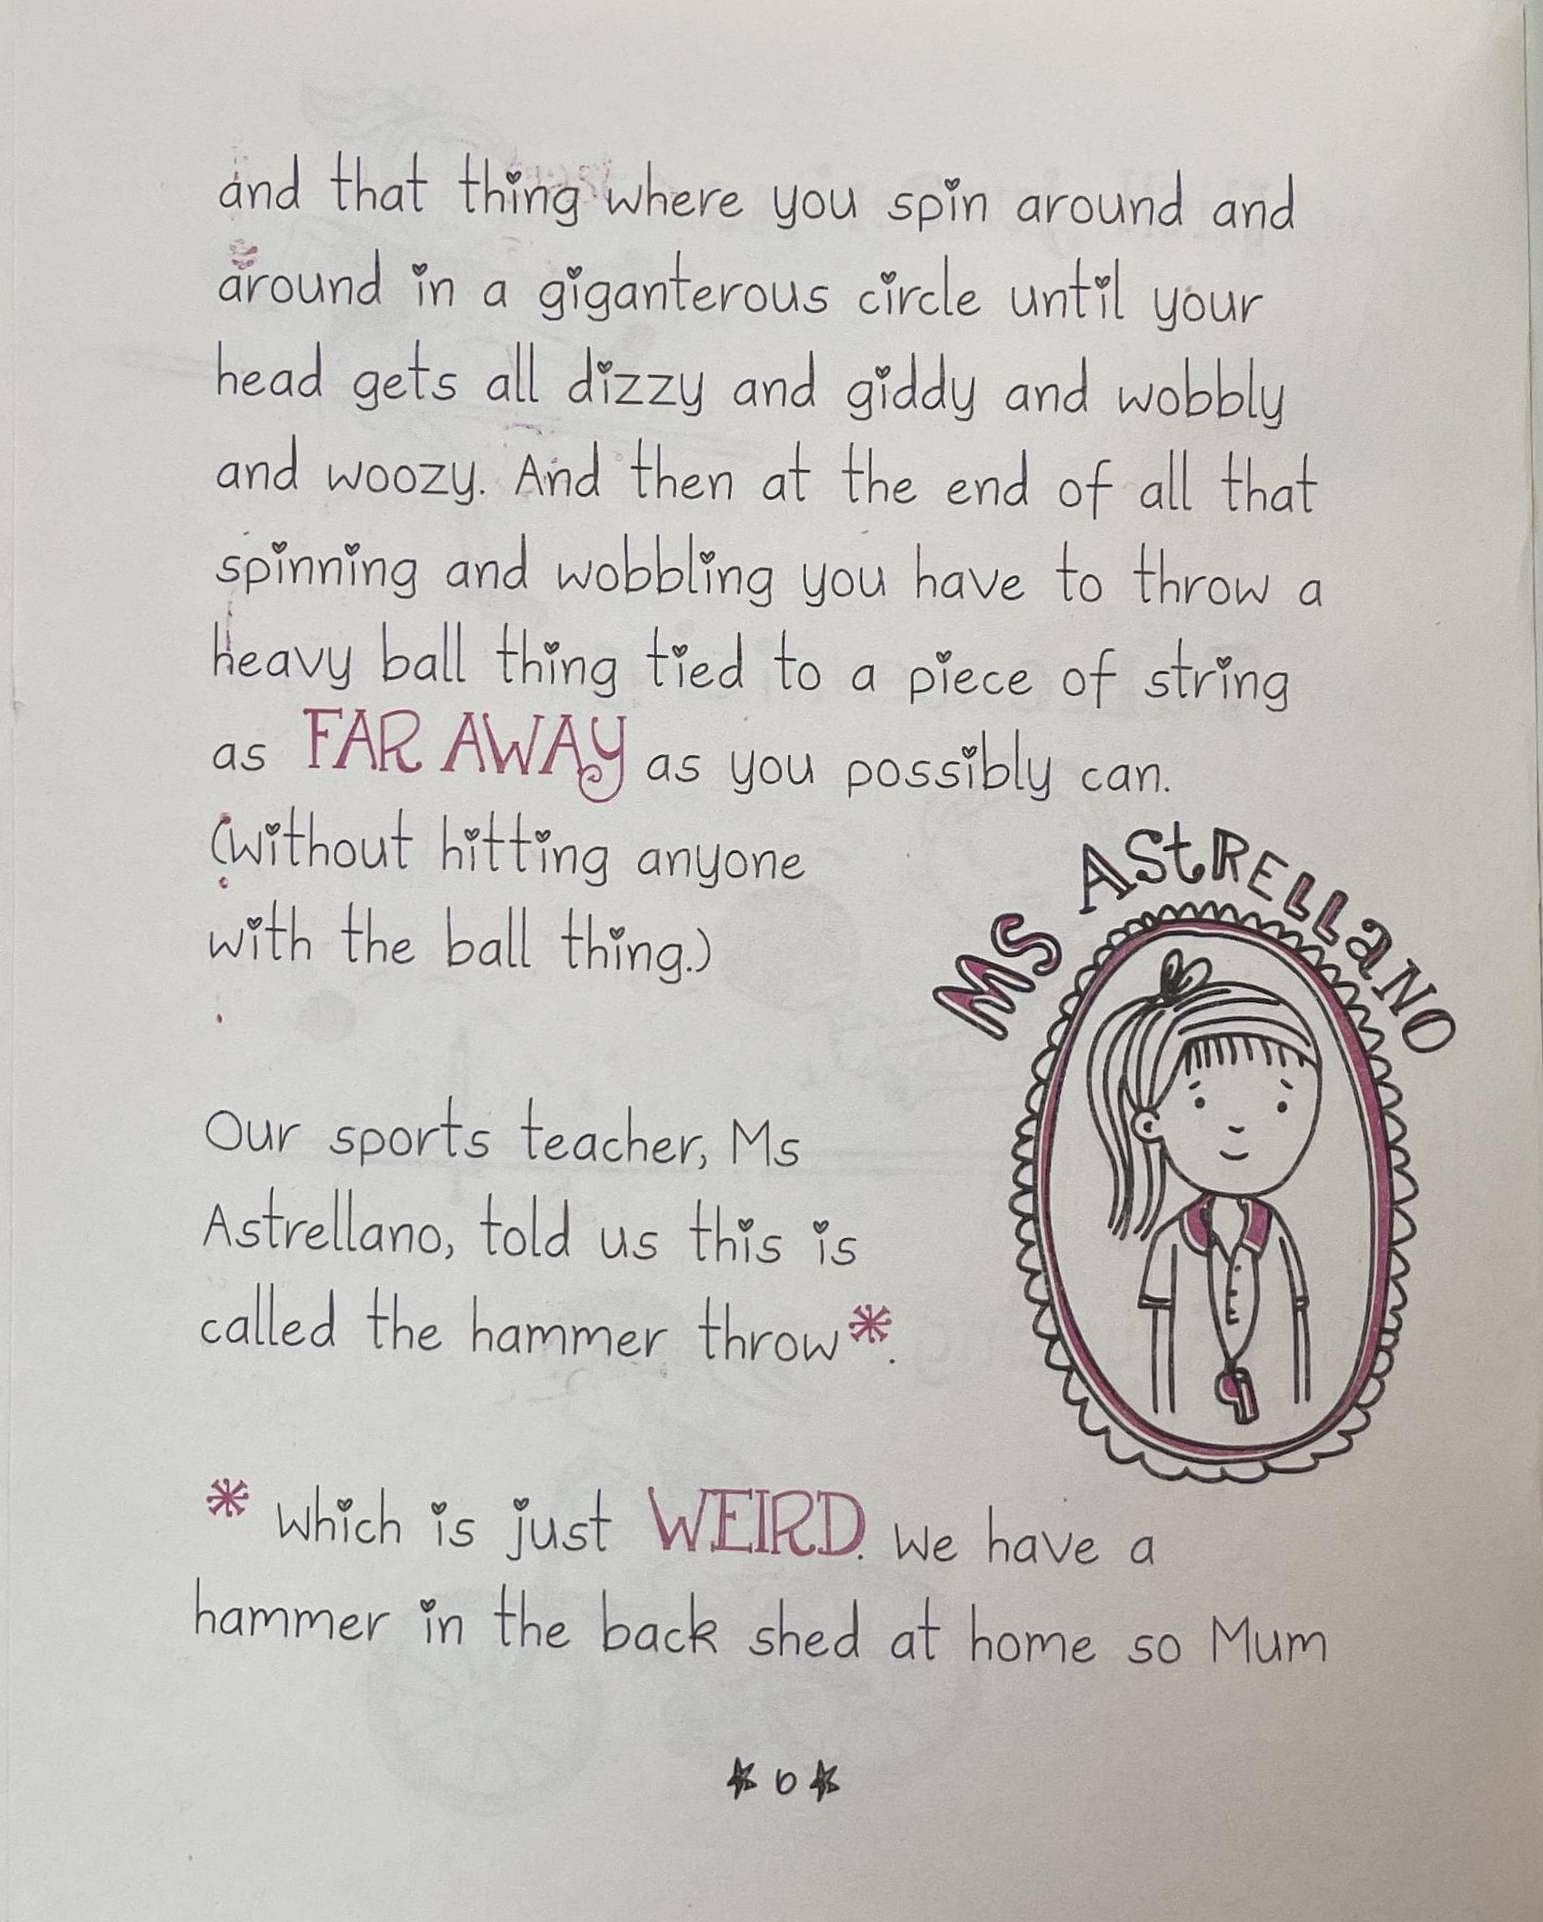 and that thing where you spin around and
around in a giganterous circle until your
head gets all dizzy and giddy and wobbly
and woozy. And then at the end of all that
spinning and wobbling you have to throw a
heavy ball thing tied to a piece of string
as FAR AWAY as you possibly can.
(Without hitting anyone
with the ball thing.)
MS ASTRELLANO
Our sports teacher, Ms
Astrellano, told us this is
called the hammer throw*.
* Which is just WEIRD. We have a
hammer in the back shed at home so Mum
6